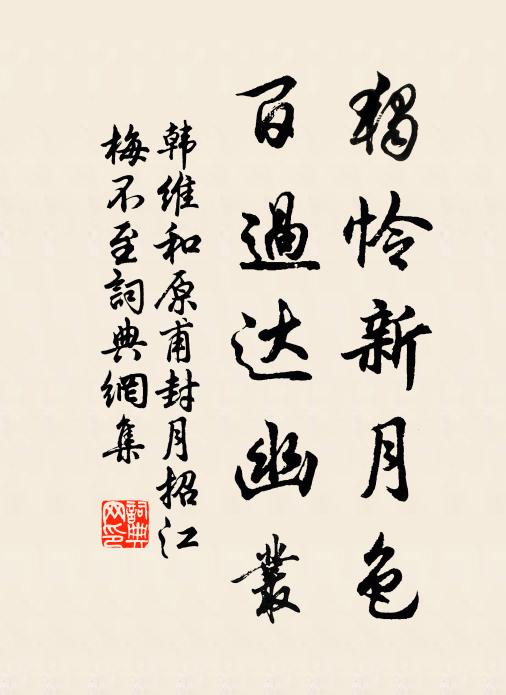 獨怜新月色
百過达幽叢
韩维和原甫封月招江
梅不至詞典網集
詞典
网印